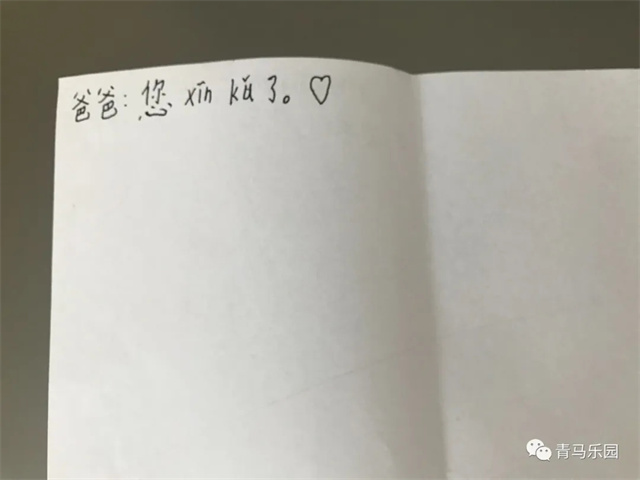 爸爸：您 xīn kǔ 了。♡
青马乐园